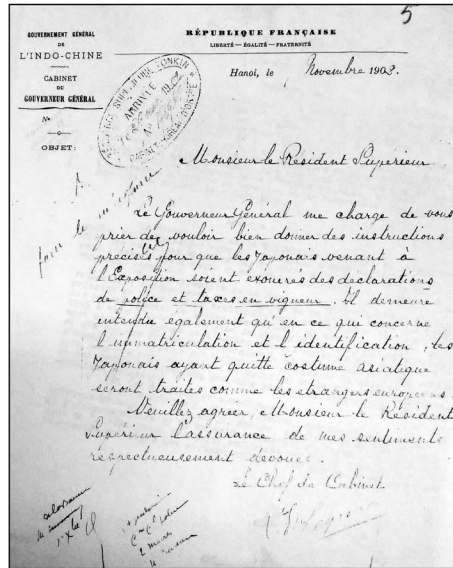 5
GOUVERNEMENT GÉNÉRAL
DE
L'INDO-CHINE
CABINET
DU
GOUVERNEUR GÉNÉRAL
N°
OBJET:
RÉPUBLIQUE FRANÇAISE
LIBERTÉ — ÉGALITÉ — FRATERNITÉ
Hanoi, le Novembre 1903.
TONKIN
ARRIVÉE
N°
Monsieur le Résident Supérieur
Le Gouverneur Général me charge de vous
prier de vouloir bien donner des instructions
précises pour que les Japonais venant à
l'Exposition soient exonérés des déclarations
de police et taxes en vigueur. Il demeure
entendu également qu'en ce qui concerne
l'immatriculation et l'identification, les
Japonais ayant quitté costume asiatique
seront traités comme les étrangers européens.
Veuillez agréer, Monsieur le Résident
Supérieur l'assurance de mes sentiments
respectueusement dévoués.
Le Chef de Cabinet